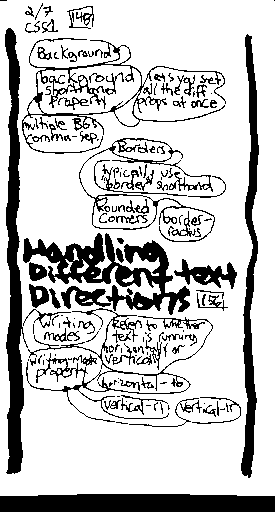 2/7
CSS1 148
Backgrounds
background
shorthand
property
lets you set
all the diff
props at once
multiple BGs
comma-sep.
Borders
typically use
"border" shorthand
Rounded
Corners
border-
radius
Handling
Different text
Directions 156
Writing
modes
Refers to whether
text is running
horizontally or
vertically
writing-mode
property
horizontal-tb
vertical-rl
vertical-lr